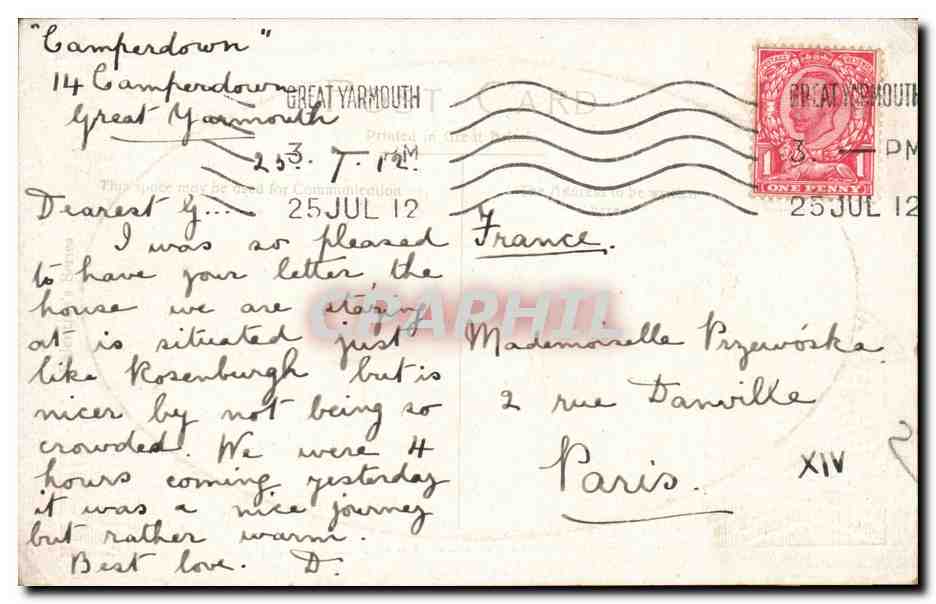 "Camperdown"
14 Camperdown
Great Yarmouth
25. 7. 12.
POST CARD
Printed in Great Britain
This space may be used for Communication
The Address to be written
here
GREAT YARMOUTH
3. PM
25 JUL 12
GREAT YARMOUTH
3. — PM
25 JUL 12
ONE PENNY
Dearest G....
I was so pleased
to have your letter the
house we are staying
at is situated just
like Rosenburgh but is
nicer by not being so
crowded. We were 4
hours coming yesterday
it was a nice journey
but rather warm.
Best love. D.
France.
Mademoiselle Przewóska
2 rue Danville
Paris.
XIV
CRAPHIL